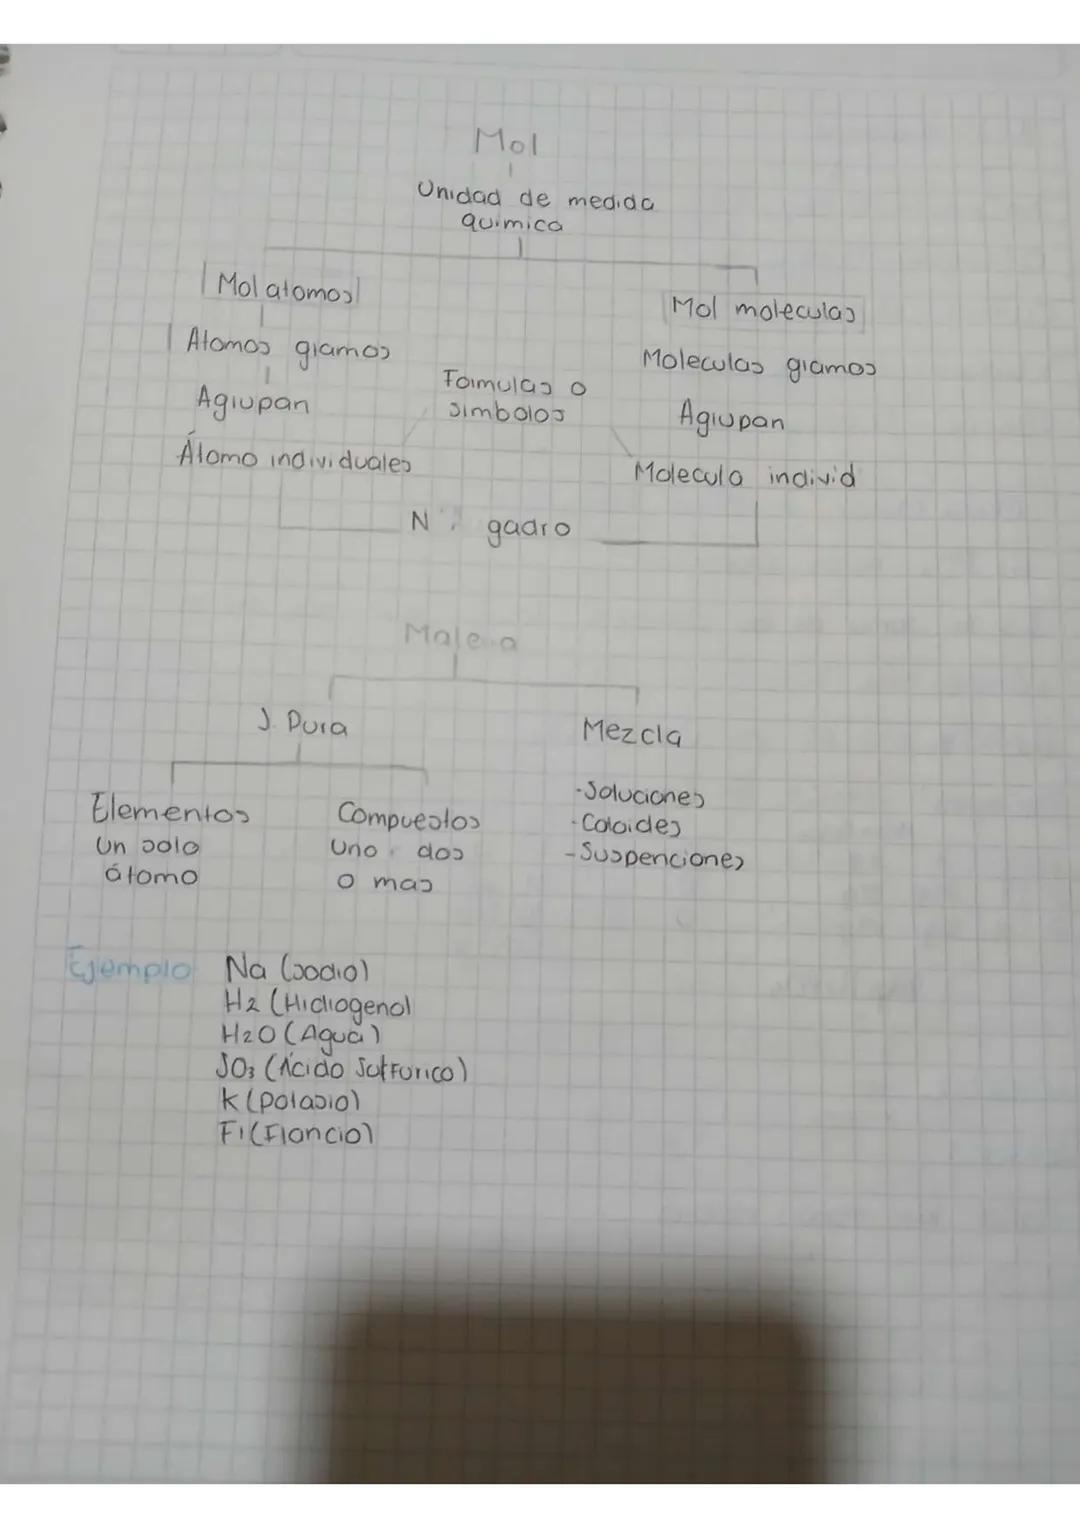 Mol
Unidad de medida
quimica
Mol atomos
Mol moleculas
Atomos gramos
Moleculas gramos
Formulas o
simbolos
Agrupan
Agrupan
Átomo individuales
Molecula individ
N gadro
S. Pura
Mezcla
Elementos
Compuestos
-Soluciones
Un solo
Uno dos
-Coloides
átomo
o mas
-Suspenciones
Ejemplo Na (sodio)
H2 (Hidrogeno)
H2O (Agua)
SO3 (Ácido Sulfurico)
K (potasio)
F1 (Francio)